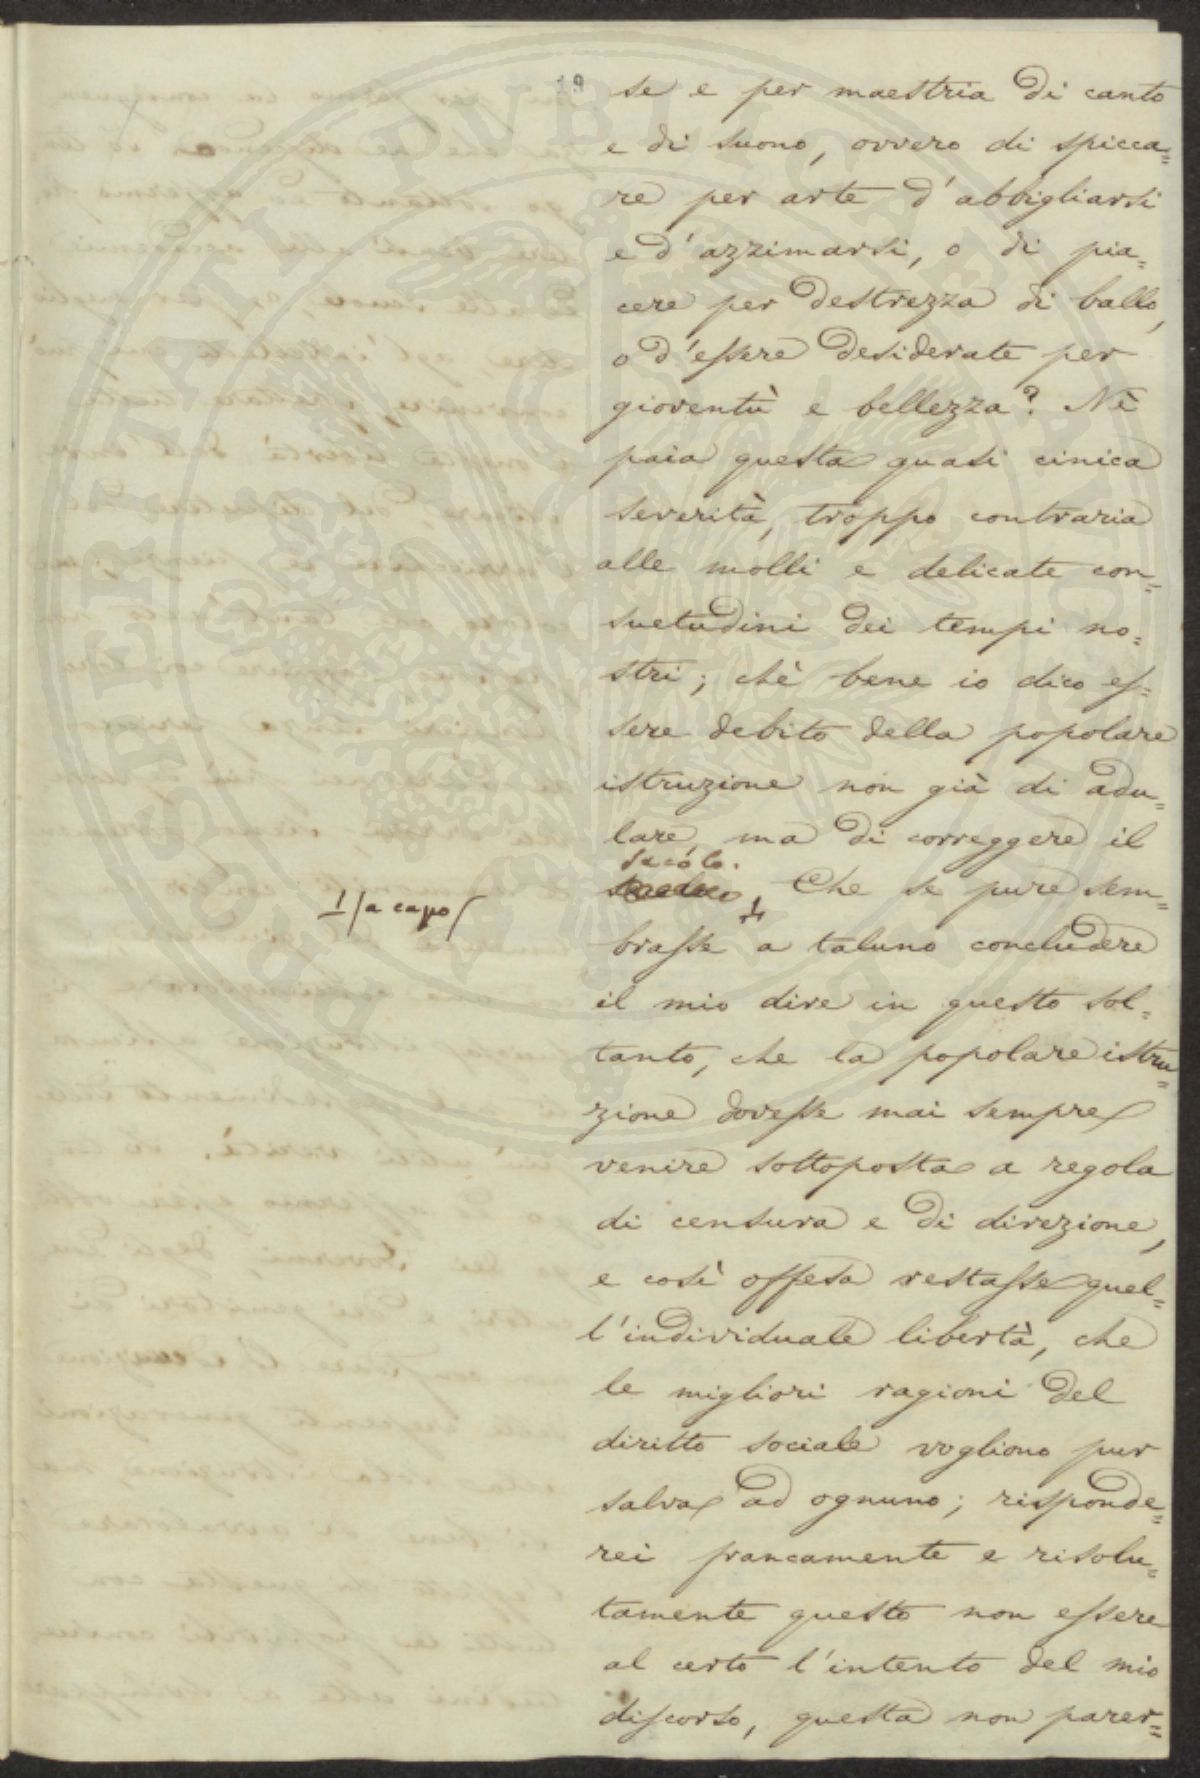 19
se e per maestria di canto
e di suono, ovvero di spicca=
re per arte d'abbigliarsi
e d'azzimarsi, o di pia=
cere per destrezza di ballo,
o d'essere desiderate per
gioventù e bellezza? Nè
paia questa quasi cinica
severità, troppo contraria
alle molli e delicate con=
suetudini dei tempi no=
stri; chè bene io dico es=
sere debito della popolare
istruzione non già di adu=
lare, ma di correggere il
secolo.
Che se pure sem=
1/a capo/
brasse a taluno concludere
il mio dire in questo sol=
tanto, che la popolare istru=
zione dovesse mai sempre
venire sottoposta a regola
di censura e di direzione,
e così offesa restasse quel=
l'individuale libertà, che
le migliori ragioni del
diritto sociale vogliono pur
salva ad ognuno; risponde=
rei francamente e risolu=
tamente questo non essere
al certo l'intento del mio
discorso, questa non parer=